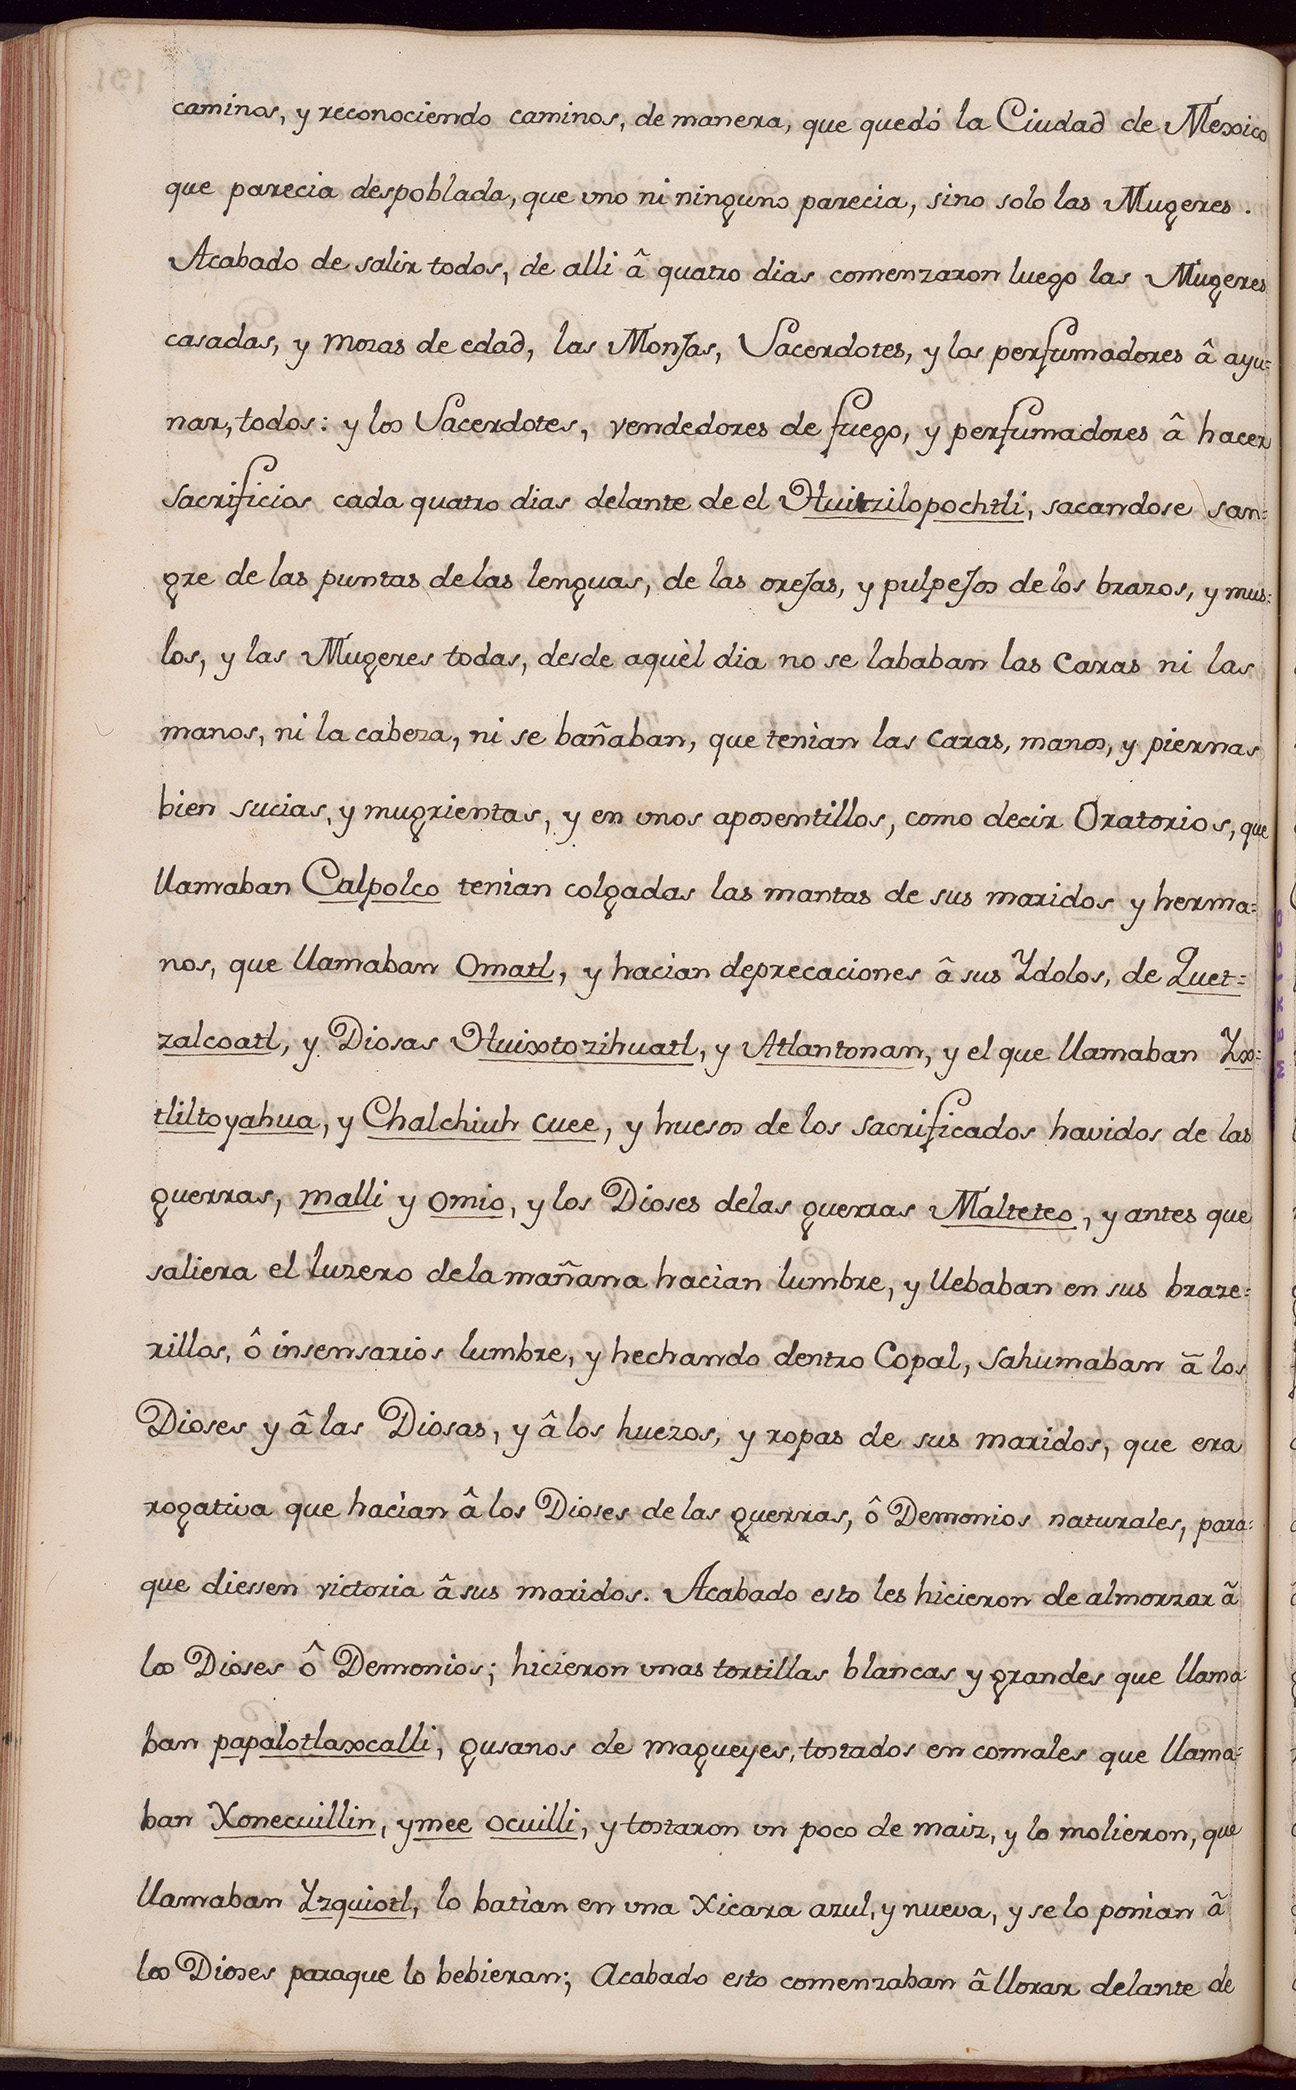 caminos, y reconociendo caminos, de manera, que quedó la Ciudad de Mexico
que parecia despoblada, que vno ni ninguno parecia, sino solo las Mugeres.
Acabado de salir todos, de alli â quatro dias comenzaron luego las Mugeres
casadas, y mozas de edad, las Monjas, Sacerdotes, y los perfumadores â ayu=
nar, todos: y los Sacerdotes, vendedores de fuego, y perfumadores â hacer
sacrificios cada quatro dias delante de el Huitzilopochtli, sacandose san=
gre de las puntas de las lenguas, de las orejas, y pulpejos de los brazos, y mus=
los, y las Mugeres todas, desde aquèl dia no se lababan las caras ni las
manos, ni la cabeza, ni se bañaban, que tenìan las caras, manos, y piernas
bien sucias, y mugrientas, y en vnos aposentillos, como decir Oratorios, que
llamaban Calpolco tenìan colgadas las mantas de sus maridos y herma=
nos, que llamaban Omatl, y hacian deprecaciones â sus Ydolos, de Quet=
zalcoatl, y Diosas Huixtozihuatl, y Atlantonan, y el que llamaban Yx=
tliltoyahua, y Chalchiuh cuee, y huesos de los sacrificados havidos de las
guerras, malli y omio, y los Dioses delas guerras Malteteo, y antes que
saliera el luzero dela mañana hacìan lumbre, y llebaban en sus braze=
rillos, ô insensarios lumbre, y hechando dentro Copal, sahumaban ã los
Dioses y â las Diosas, y â los huezos, y ropas de sus maridos, que era
rogativa que hacìan â los Dioses de las guerras, ô Demonios naturales, para=
que diessen victoria â sus maridos. Acabado esto les hicieron de almorzar ã
los Dioses ô Demonios; hicieron vnas tortillas blancas y grandes que llama=
ban papalotlaxcalli, gusanos de magueyes, tostados en comales que llama=
ban Xonecuillin, ymee ocuilli, y tostaron vn poco de maiz, y lo molieron, que
llamaban Yzquiotl, lo batìan en vna xicara azul, y nueva, y se lo ponìan ã
los Dioses paraque lo bebieran; Acabado esto comenzaban ã llorar delante de
MEXICO
191